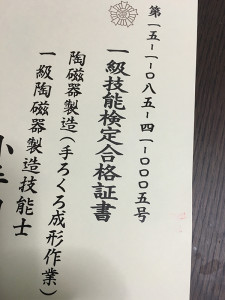 第一五-一-〇八五-四一-〇〇〇五号
一級技能検定合格証書
陶磁器製造(手ろくろ成形作業)
一級陶磁器製造技能士